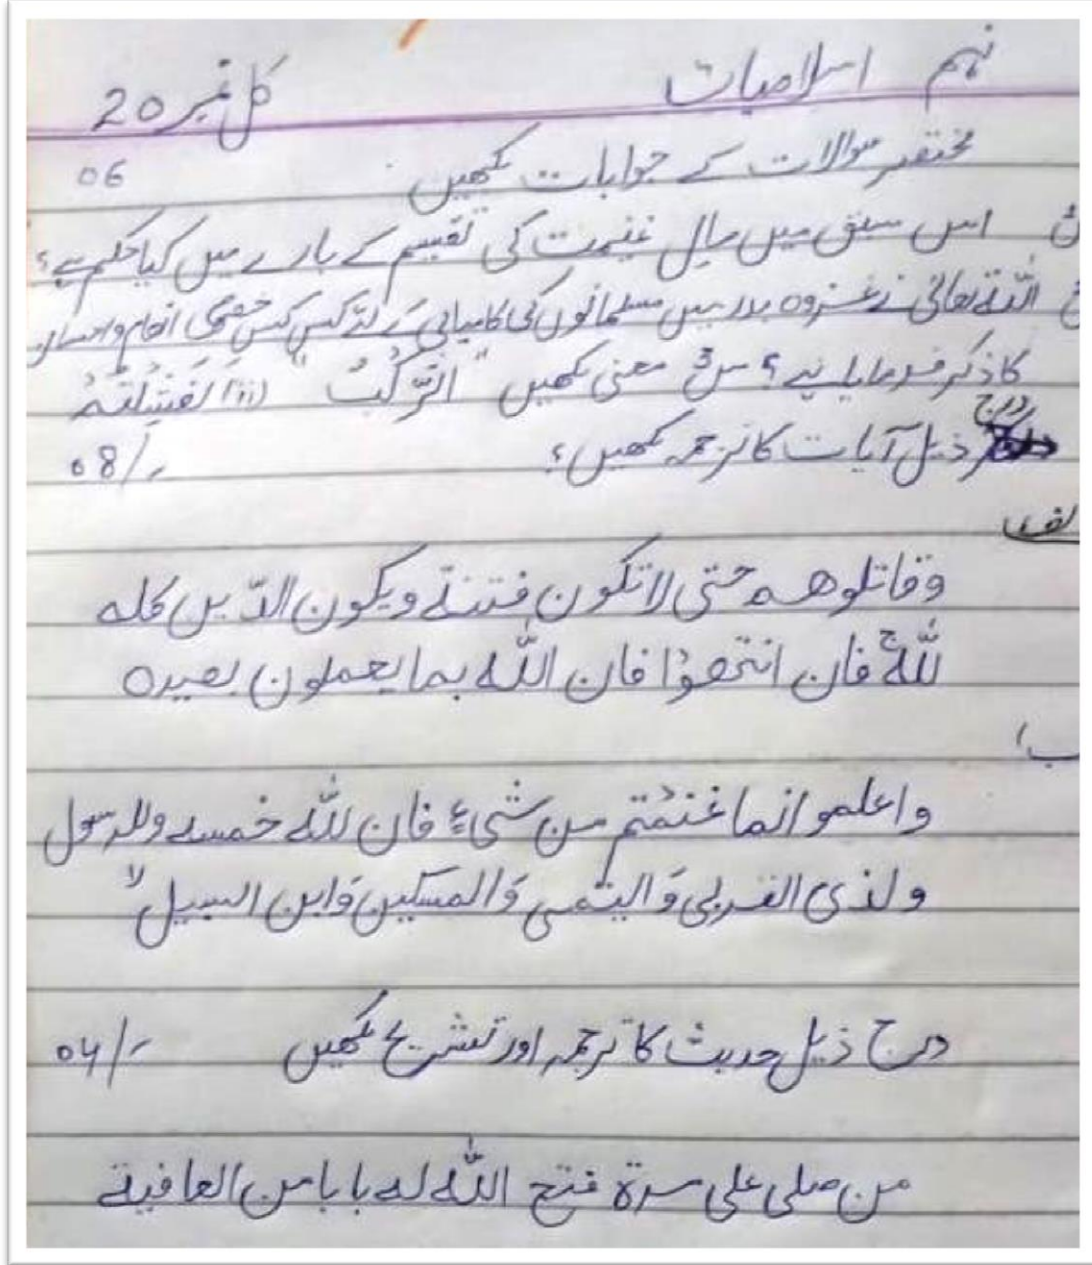 نہم اسلامیات کل نمبر 20
مختصر سوالات کے جوابات لکھیں 06
اس سبق میں مالِ غنیمت کی تقسیم کے بارے میں کیا حکم ہے؟
اللہ تعالیٰ نے غزوہ بدر میں مسلمانوں کی کامیابی کے لئے کس کس خصوصی انعام و احسان
کا ذکر فرمایا ہے؟ س3 معنی لکھیں "الرَّكْبُ" (ii) لَفَشِلْتُمْ
درج ذیل آیات کا ترجمہ لکھیں؟ 08/-
الف
وقاتلوهم حتى لا تكون فتنة ويكون الدّين كله
للّٰه ج فان انتهوْا فان اللّٰه بما يعملون بصيره
ب)
واعلمو انما غنمْتم من شیءٍ فان للّٰه خمسه وللرسول
ولذی القربى وَاليتمى وَالمسكين وَابن السبيل لا
درج ذیل حدیث کا ترجمہ اور تشریح لکھیں 04/-
من صلى على مرة فتح اللّٰه له بابا من العافية